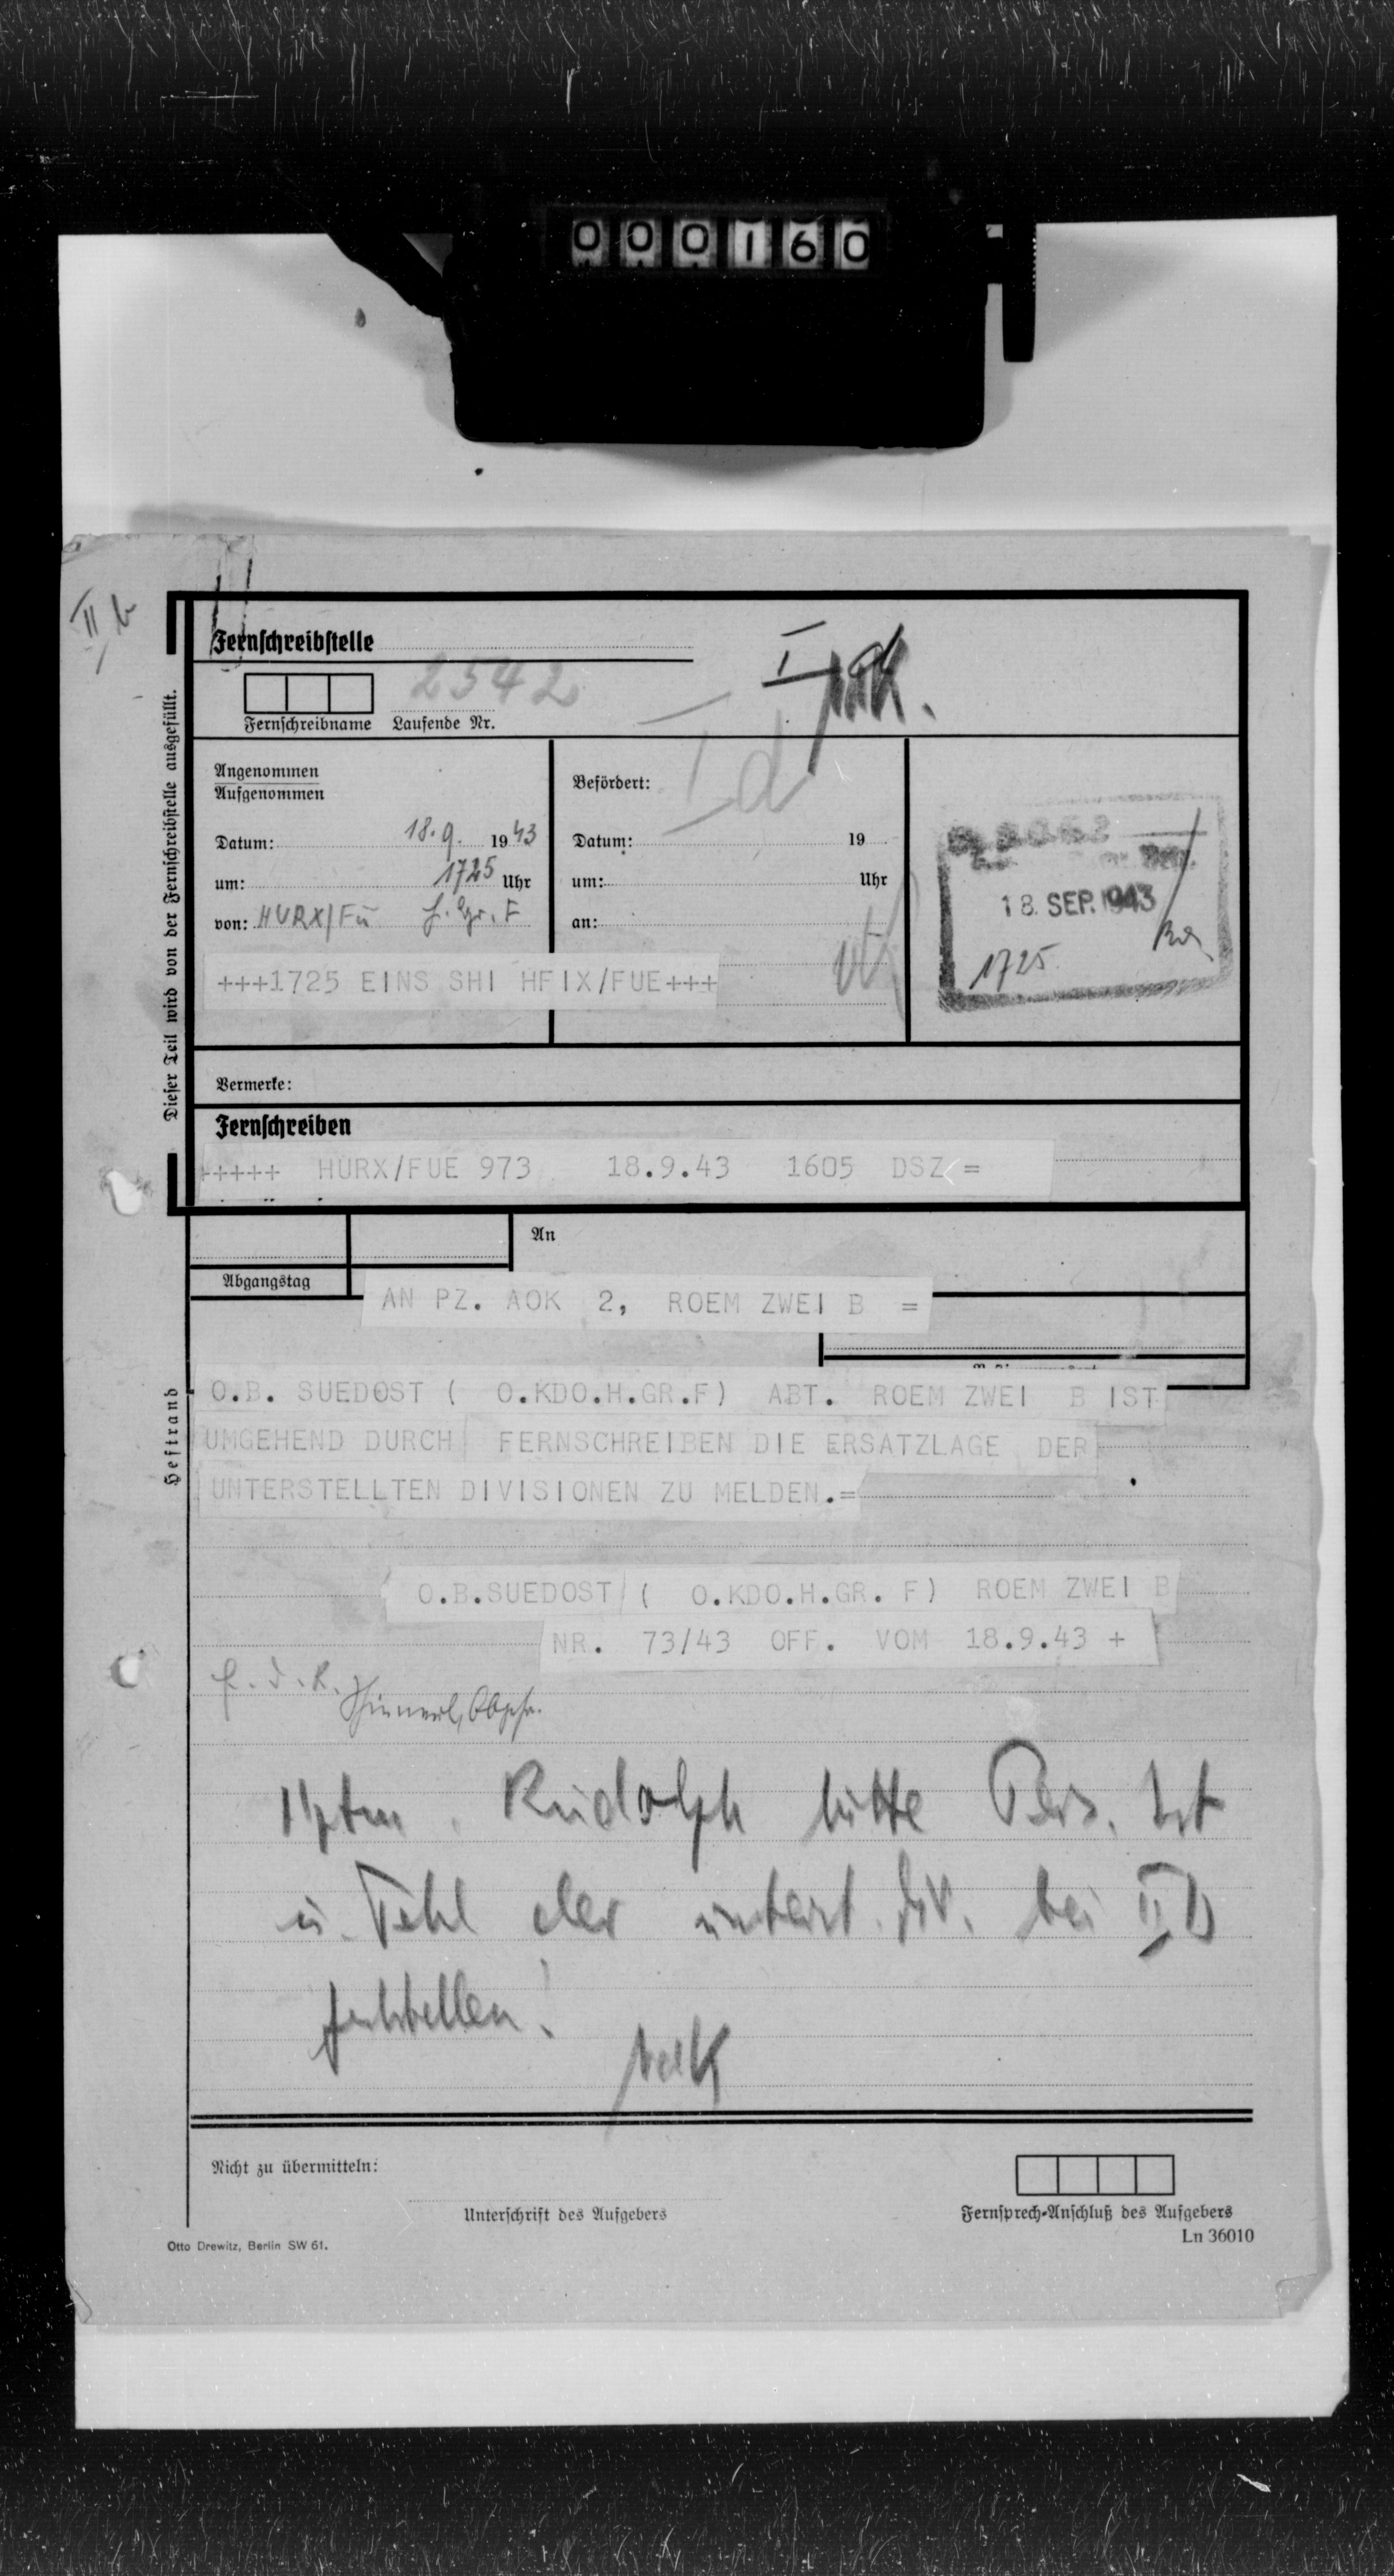 000160
II b
Fernschreibstelle
2542
Fernschreibname Laufende Nr.
Dieser Teil wird von der Fernschreibstelle ausgefüllt.
Angenommen
Aufgenommen
Datum: 18.9. 1943
um: 1725 Uhr
von: HURX/Fü H.Gr. F
Befördert:
Id
Datum: 19
um: Uhr
an:
18. SEP. 1943
1725
+++1725 EINS SHI HFIX/FUE+++
Vermerke:
Fernschreiben
+++++ HURX/FUE 973 18.9.43 1605 DSZ =
An
Abgangstag
AN PZ. AOK 2, ROEM ZWEI B =
Heftrand
O.B. SUEDOST ( O.KDO.H.GR.F) ABT. ROEM ZWEI B IST
UMGEHEND DURCH FERNSCHREIBEN DIE ERSATZLAGE DER
UNTERSTELLTEN DIVISIONEN ZU MELDEN.=
O.B.SUEDOST ( O.KDO.H.GR. F) ROEM ZWEI B
NR. 73/43 OFF. VOM 18.9.43 +
F.d.R.
Hptm. Rudolph bitte
u. Fehl der unterst. Div. bei II b
feststellen!
Nicht zu übermitteln:
Unterschrift des Aufgebers
Fernsprech-Anschluß des Aufgebers
Ln 36010
Otto Drewitz, Berlin SW 61.